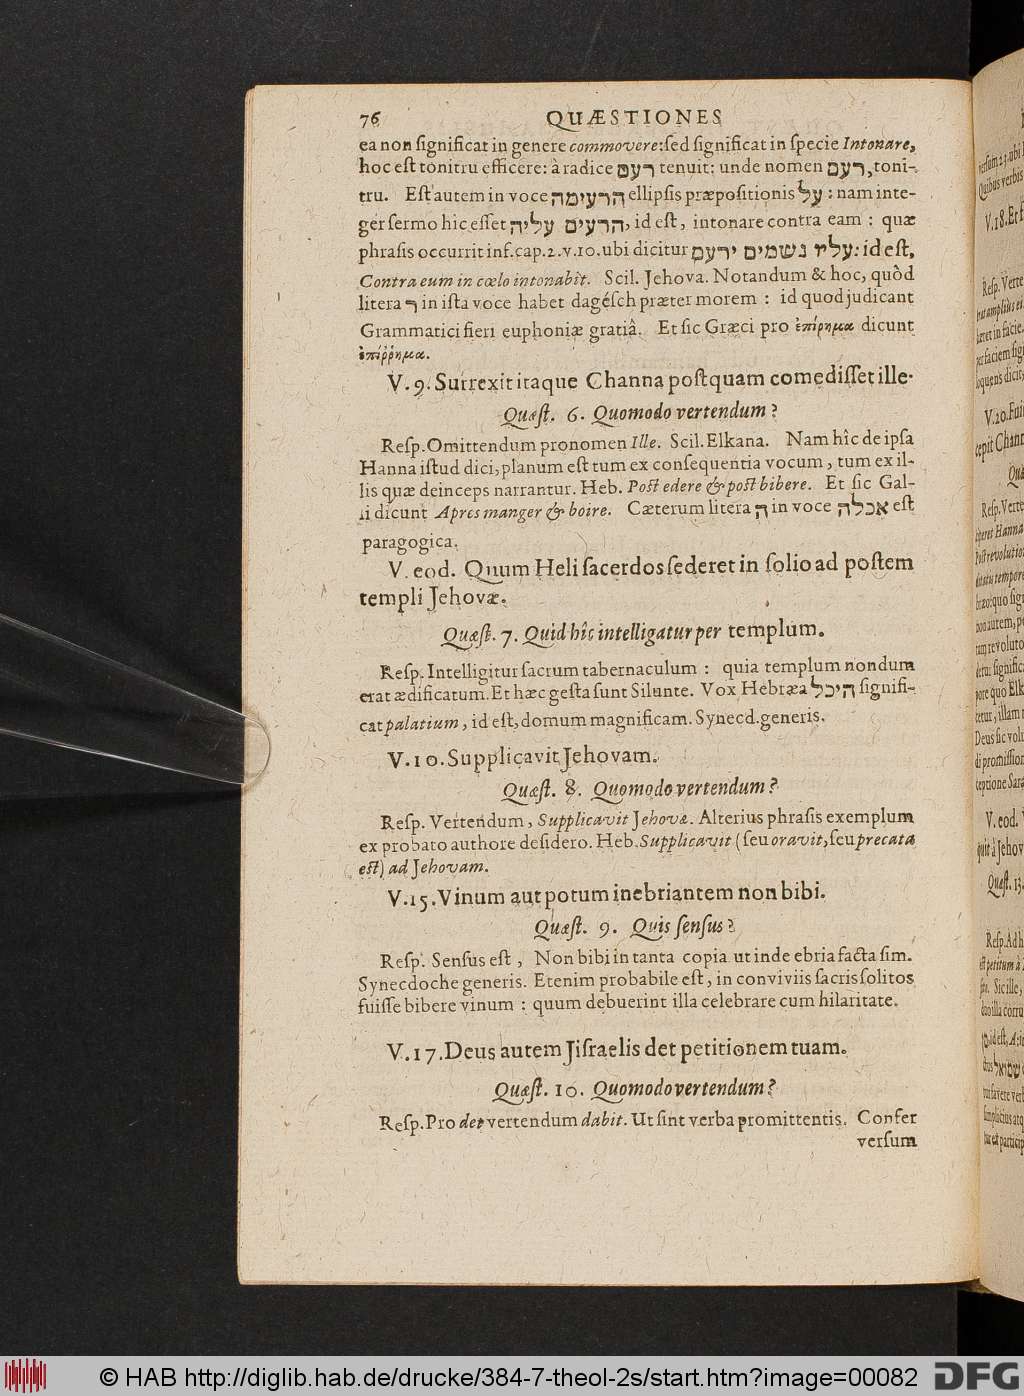 76 QUÆSTIONES
ea non ſignificat in genere commovere: ſed ſignificat in ſpecie Intonare,
hoc eſt tonitru efficere: à radice רעם tenuit: unde nomen רעם, toni-
tru. Eſt autem in voce הרעימה ellipſis præpoſitionis על: nam inte-
ger ſermo hic eſſet הרעים עליה, id eſt, intonare contra eam: quæ
phraſis occurrit inf. cap. 2. v. 10. ubi dicitur עליו נשמים ירעם: id eſt,
Contra eum in cœlo intonabit. Scil. Jehova. Notandum & hoc, quòd
litera ר in iſta voce habet dagéſch præter morem: id quod judicant
Grammatici fieri euphoniæ gratiâ. Et ſic Græci pro ἐπίρημα dicunt
ἐπίῤῥημα.
V. 9. Surrexit itaque Channa poſtquam comediſſet ille.
Quæſt. 6. Quomodo vertendum?
Reſp. Omittendum pronomen Ille. Scil. Elkana. Nam hîc de ipſa
Hanna iſtud dici, planum eſt tum ex conſequentia vocum, tum ex il-
lis quæ deinceps narrantur. Heb. Poſt edere & poſt bibere. Et ſic Gal-
li dicunt Apres manger & boire. Cæterum litera ה in voce אכלה eſt
paragogica.
V. eod. Quum Heli ſacerdos ſederet in ſolio ad poſtem
templi Jehovæ.
Quæſt. 7. Quid hîc intelligatur per templum.
Reſp. Intelligitur ſacrum tabernaculum: quia templum nondum
erat ædificatum. Et hæc geſta ſunt Silunte. Vox Hebræa היכל ſignifi-
cat palatium, id eſt, domum magnificam. Synecd. generis.
V. 10. Supplicavit Jehovam.
Quæſt. 8. Quomodo vertendum?
Reſp. Vertendum, Supplicavit Jehovæ. Alterius phraſis exemplum
ex probato authore deſidero. Heb. Supplicavit (ſeu oravit, ſeu precata
eſt) ad Jehovam.
V. 15. Vinum aut potum inebriantem non bibi.
Quæſt. 9. Quis ſenſus?
Reſp. Senſus eſt, Non bibi in tanta copia ut inde ebria facta ſim.
Synecdoche generis. Etenim probabile eſt, in conviviis ſacris ſolitos
fuiſſe bibere vinum: quum debuerint illa celebrare cum hilaritate.
V. 17. Deus autem Jiſraelis det petitionem tuam.
Quæſt. 10. Quomodo vertendum?
Reſp. Pro det vertendum dabit. Ut ſint verba promittentis. Confer
verſum
© HAB http://diglib.hab.de/drucke/384-7-theol-2s/start.htm?image=00082
DFG